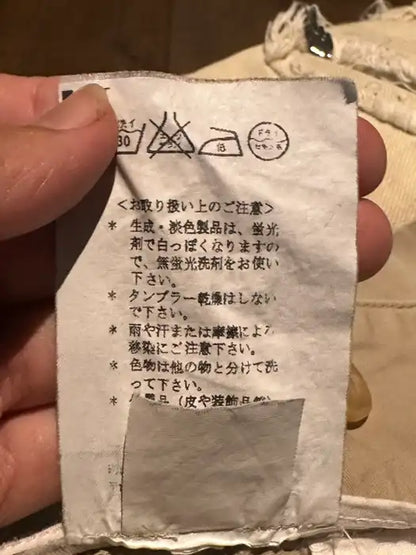 30
低
ドライ
<お取り扱い上のご注意>
* 生成・淡色製品は、蛍光
剤で白っぽくなりますの
で、無蛍光洗剤をお使い
下さい。
* タンブラー乾燥はしない
で下さい。
* 雨や汗または摩擦による
移染にご注意下さい。
* 色物は他の物と分けて洗
って下さい。
* 品(皮や装飾品